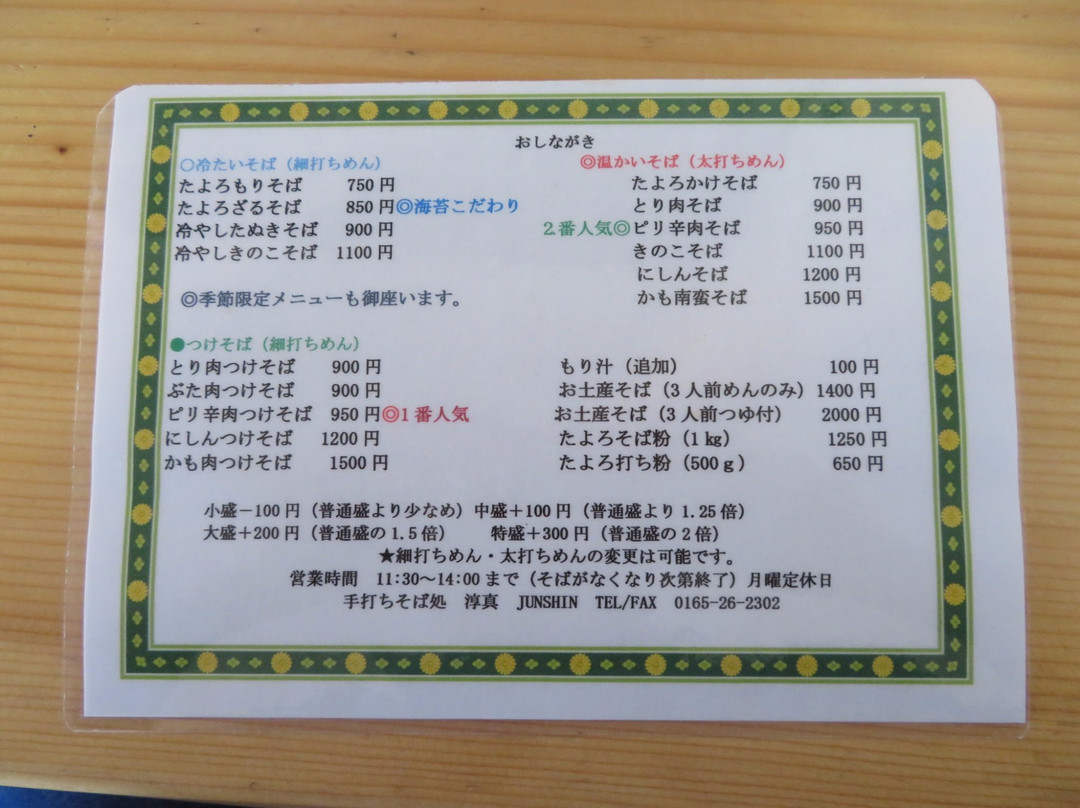 おしながき
○冷たいそば（細打ちめん）
たよろもりそば 750円
たよろざるそば 850円◎海苔こだわり
冷やしたぬきそば 900円
冷やしきのこそば 1100円
◎季節限定メニューも御座います。
◎温かいそば（太打ちめん）
たよろかけそば 750円
とり肉そば 900円
2番人気◎ピリ辛肉そば 950円
きのこそば 1100円
にしんそば 1200円
かも南蛮そば 1500円
●つけそば（細打ちめん）
とり肉つけそば 900円
ぶた肉つけそば 900円
ピリ辛肉つけそば 950円◎1番人気
にしんつけそば 1200円
かも肉つけそば 1500円
もり汁（追加） 100円
お土産そば（3人前めんのみ）1400円
お土産そば（3人前つゆ付） 2000円
たよろそば粉（1㎏） 1250円
たよろ打ち粉（500ｇ） 650円
小盛－100円（普通盛より少なめ）中盛＋100円（普通盛より1.25倍）
大盛＋200円（普通盛の1.5倍） 特盛＋300円（普通盛の2倍）
★細打ちめん・太打ちめんの変更は可能です。
営業時間 11:30～14:00まで（そばがなくなり次第終了）月曜定休日
手打ちそば処 淳真 JUNSHIN TEL/FAX 0165-26-2302